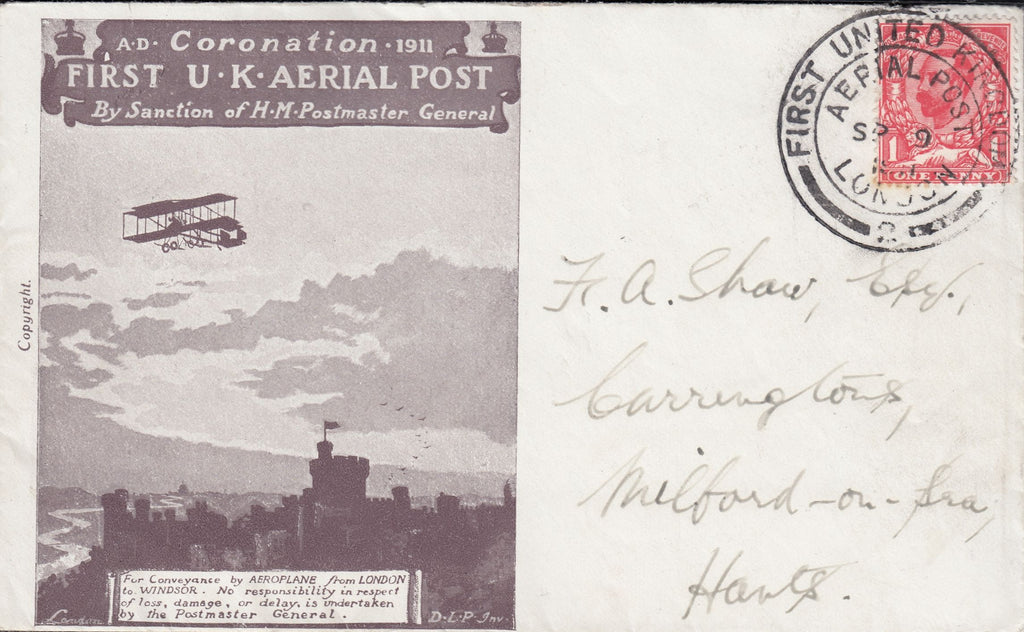 A·D· Coronation · 1911
FIRST U·K·AERIAL POST
By Sanction of H·M·Postmaster General
Copyright.
For Conveyance by AEROPLANE from LONDON
to WINDSOR. No responsibility in respect
of loss, damage, or delay, is undertaken
by the Postmaster General.
D·L·P·Inv.
FIRST UNITED KINGDOM
AERIAL POST
SP 9
LONDON
ONE PENNY
1
F. A. Shaw, Esq.,
Carringtons,
Milford-on-Sea,
Hants.